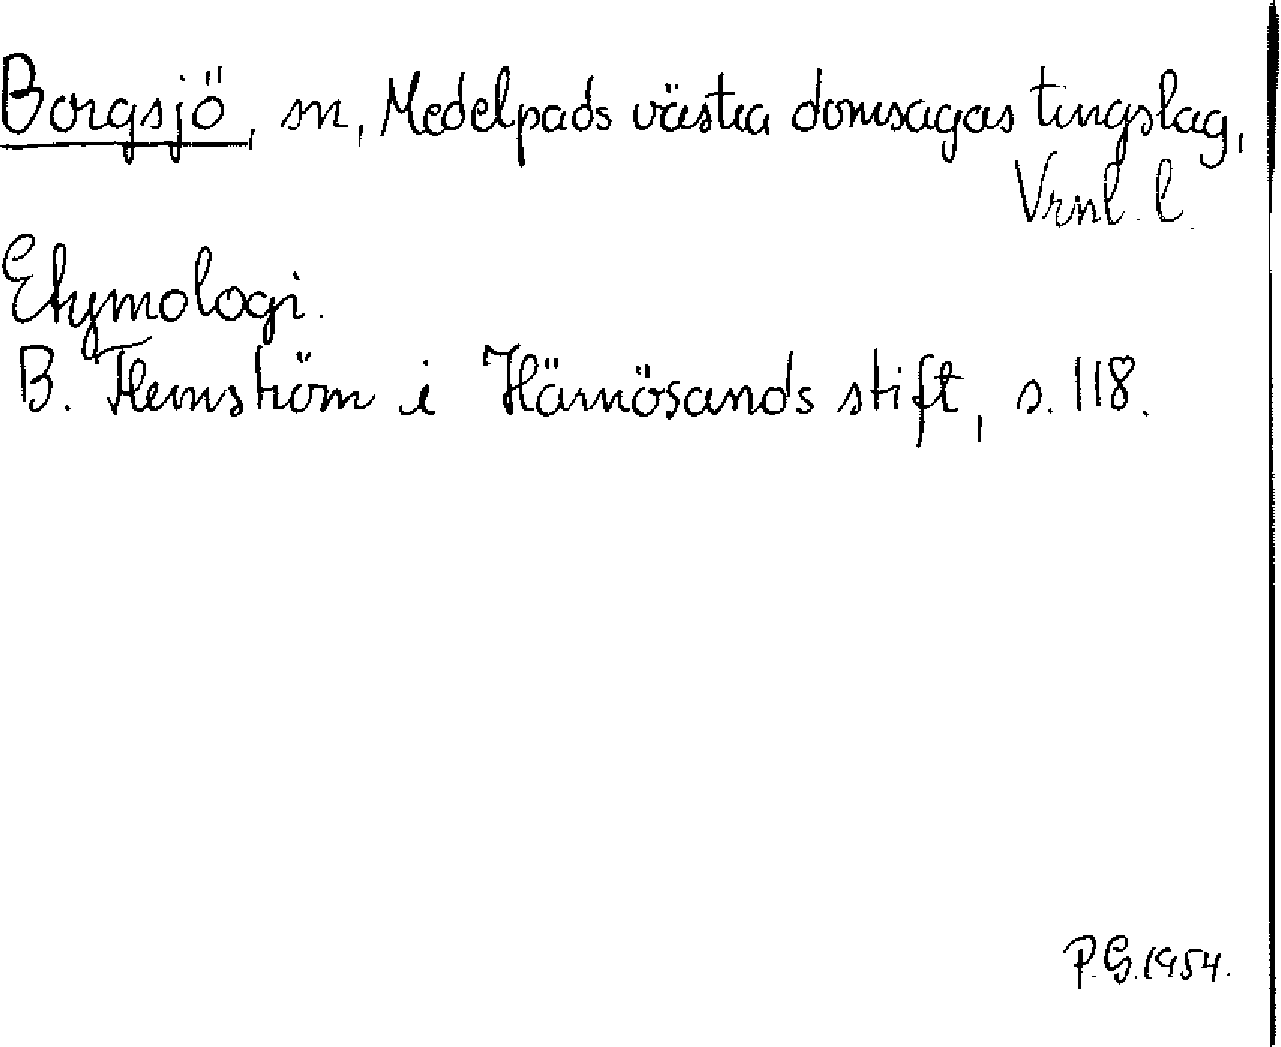 Borgsjö, sn, Medelpads västra domsagas tingslag,
Vrnl. l.
Etymologi.
B. Flemström i Härnösands stift, s. 118.
P.G. 1954.